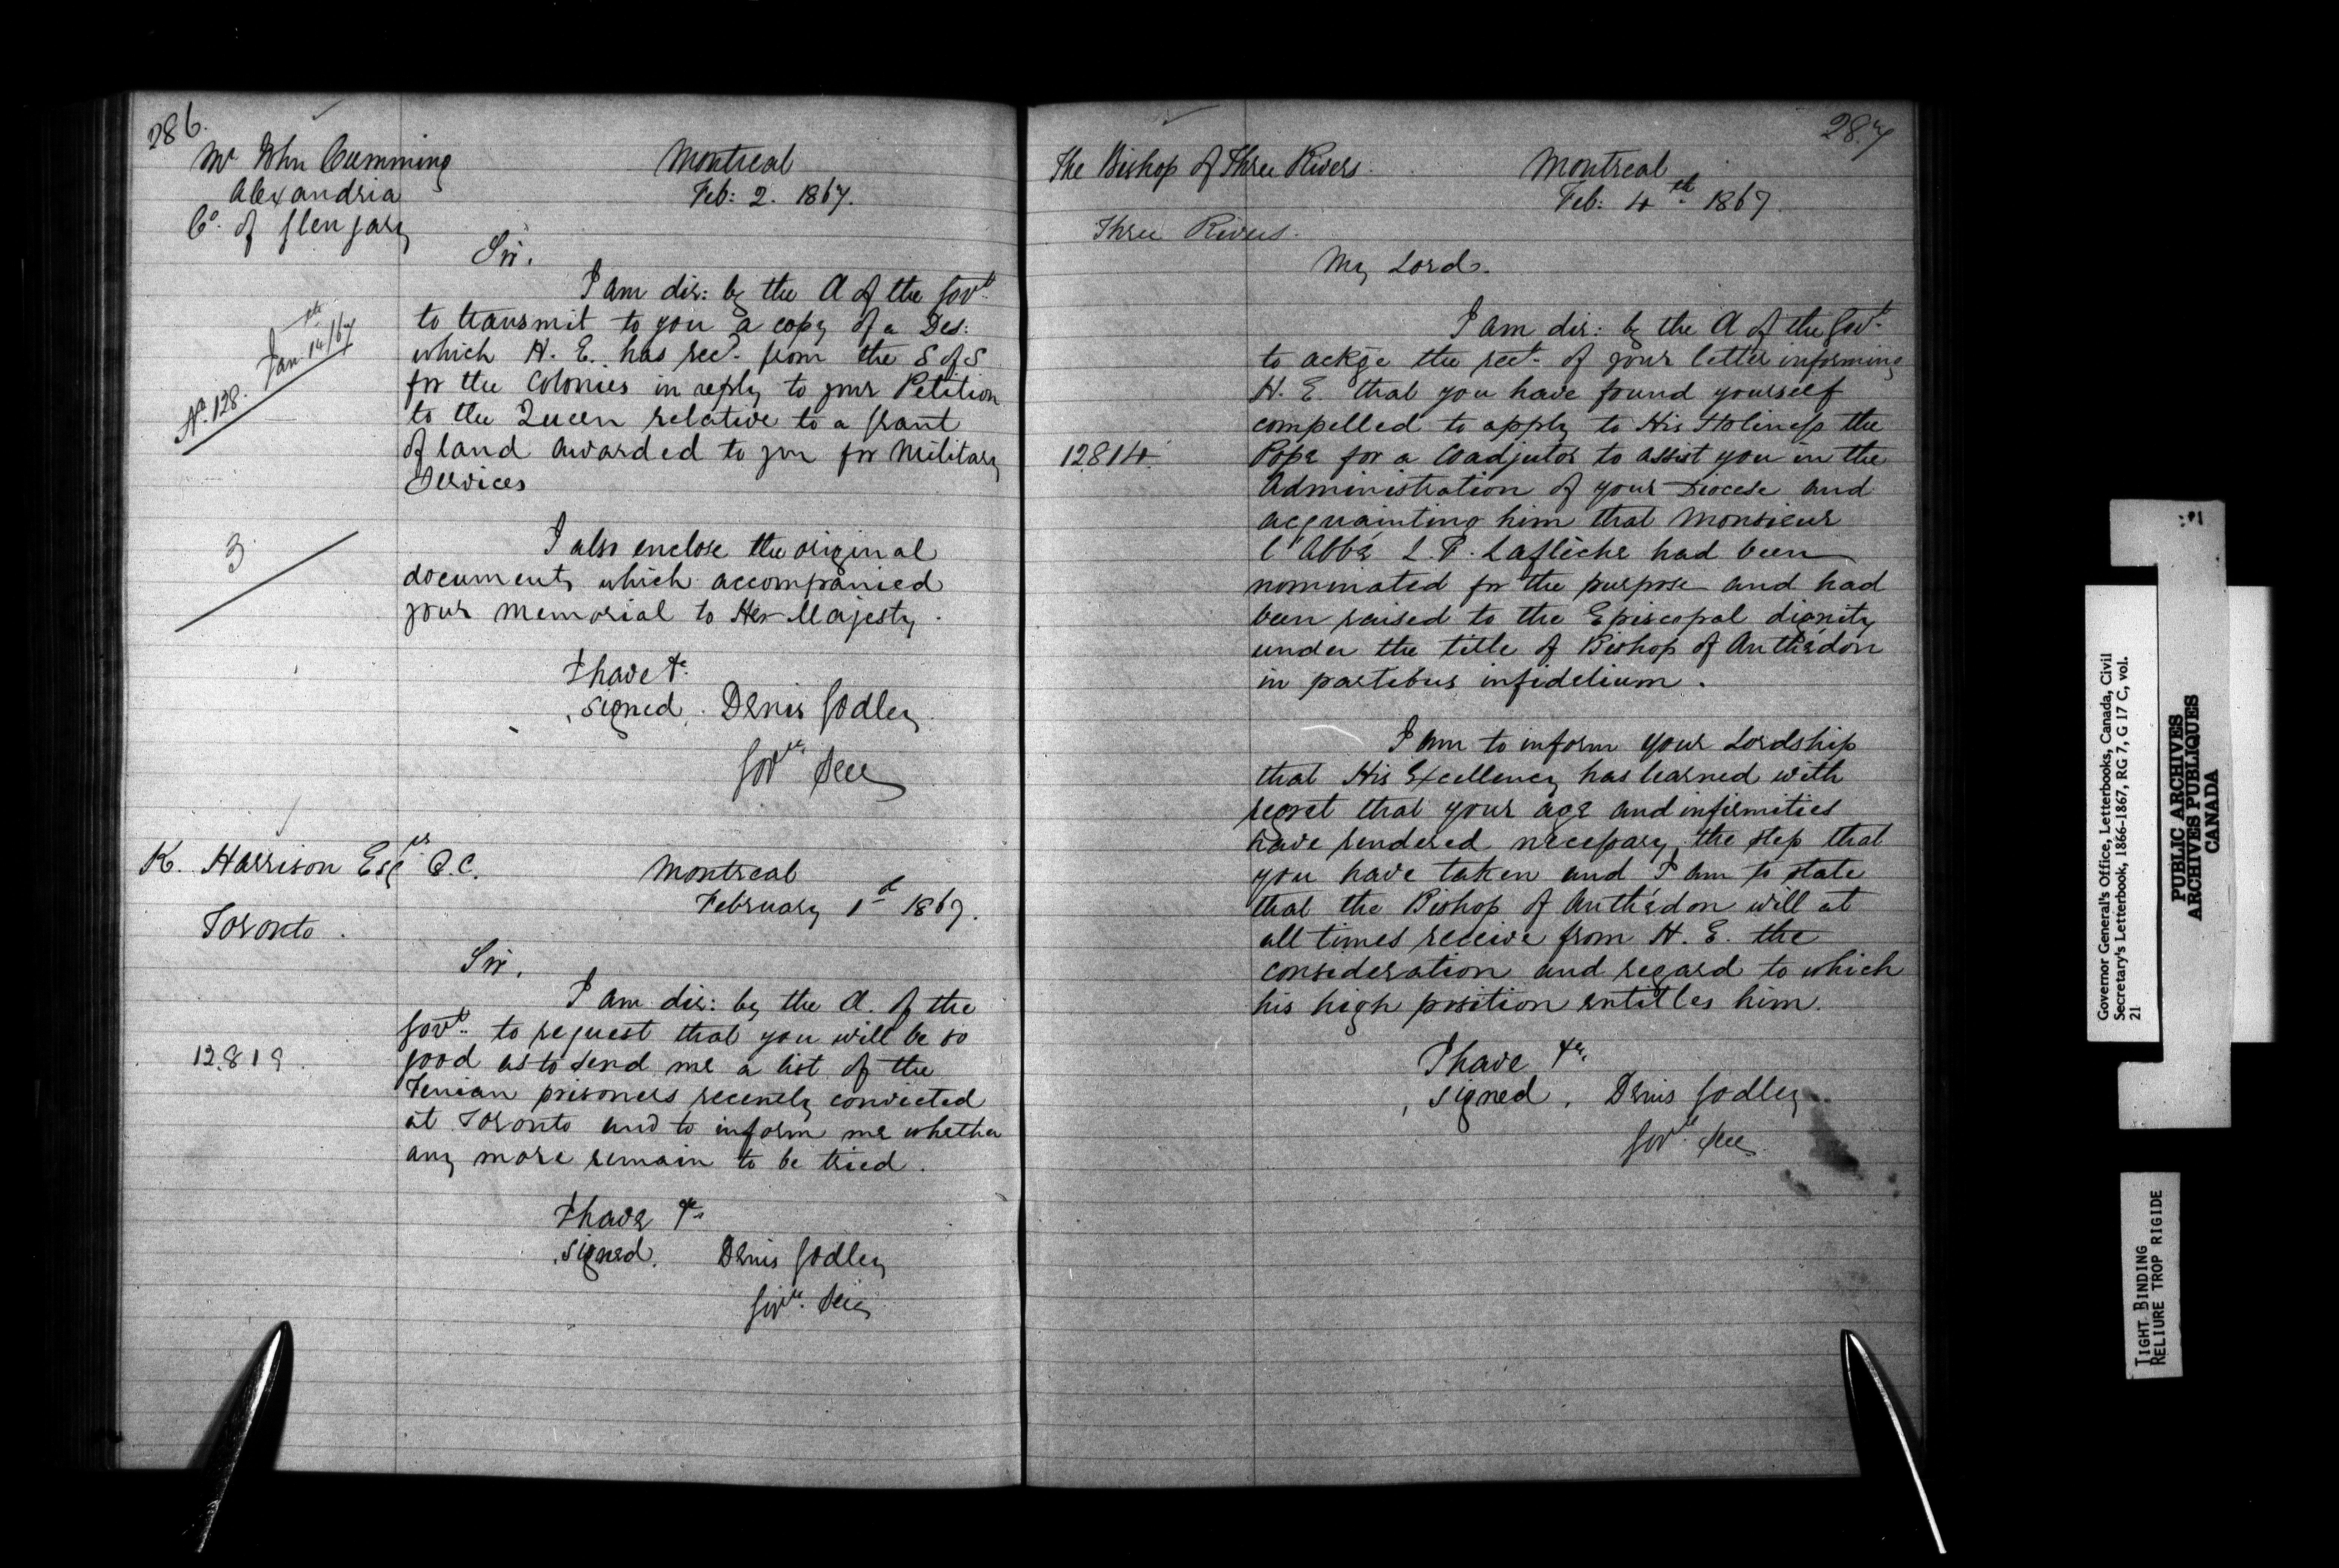 286.
Mr John Cumming
Alexandria
Co. of Glengary
Montreal
Feb: 2. 1867.
Sir.
I am dir: by the A of the Govt
to transmit to you a copy of a Des:
which H. E. has recd. from the S of S
for the Colonies in reply to your Petition
to the Queen relative to a grant
of land awarded to you for Military
Services
No. 128. Jan. 14th/67
3
I also enclose the original
documents which accompanied
your memorial to Her Majesty.
I have &c
signed. Denis Godley
Govrs Secy
K. Harrison Esqre Q.C.
Toronto.
Montreal
February 1st 1867.
Sir,
I am dir: by the A. of the
Govt. to request that you will be so
good as to send me a list of the
Fenian prisoners recently convicted
at Toronto and to inform me whether
any more remain to be tried.
12819.
I have &c
signed. Denis Godley
Govr. Secy
287
The Bishop of Three Rivers.
Three Rivers.
Montreal
Feb: 4th 1867.
My Lord.
I am dir: by the A of the Govt.
to ackge the rect. of your letter informing
H. E. that you have found yourself
compelled to apply to His Holiness the
Pope for a Coadjutor to assist you in the
Administration of your Diocese and
acquainting him that Monsieur
l'Abbé L. F. Laflèche had been
nominated for the purpose and had
been raised to the Episcopal dignity
under the title of Bishop of Anthédon
in partibus infidelium.
12814.
I am to inform your Lordship
that His Excellency has learned with
regret that your age and infirmities
have rendered necessary the step that
you have taken and I am to state
that the Bishop of Anthédon will at
all times receive from H. E. the
consideration and regard to which
his high position entitles him.
I have &c.
signed. Denis Godley
Govr. Secy
Governor General's Office, Letterbooks, Canada, Civil
Secretary's Letterbook, 1866-1867, RG 7, G 17 C, vol.
21
PUBLIC ARCHIVES
ARCHIVES PUBLIQUES
CANADA
TIGHT BINDING
RELIURE TROP RIGIDE